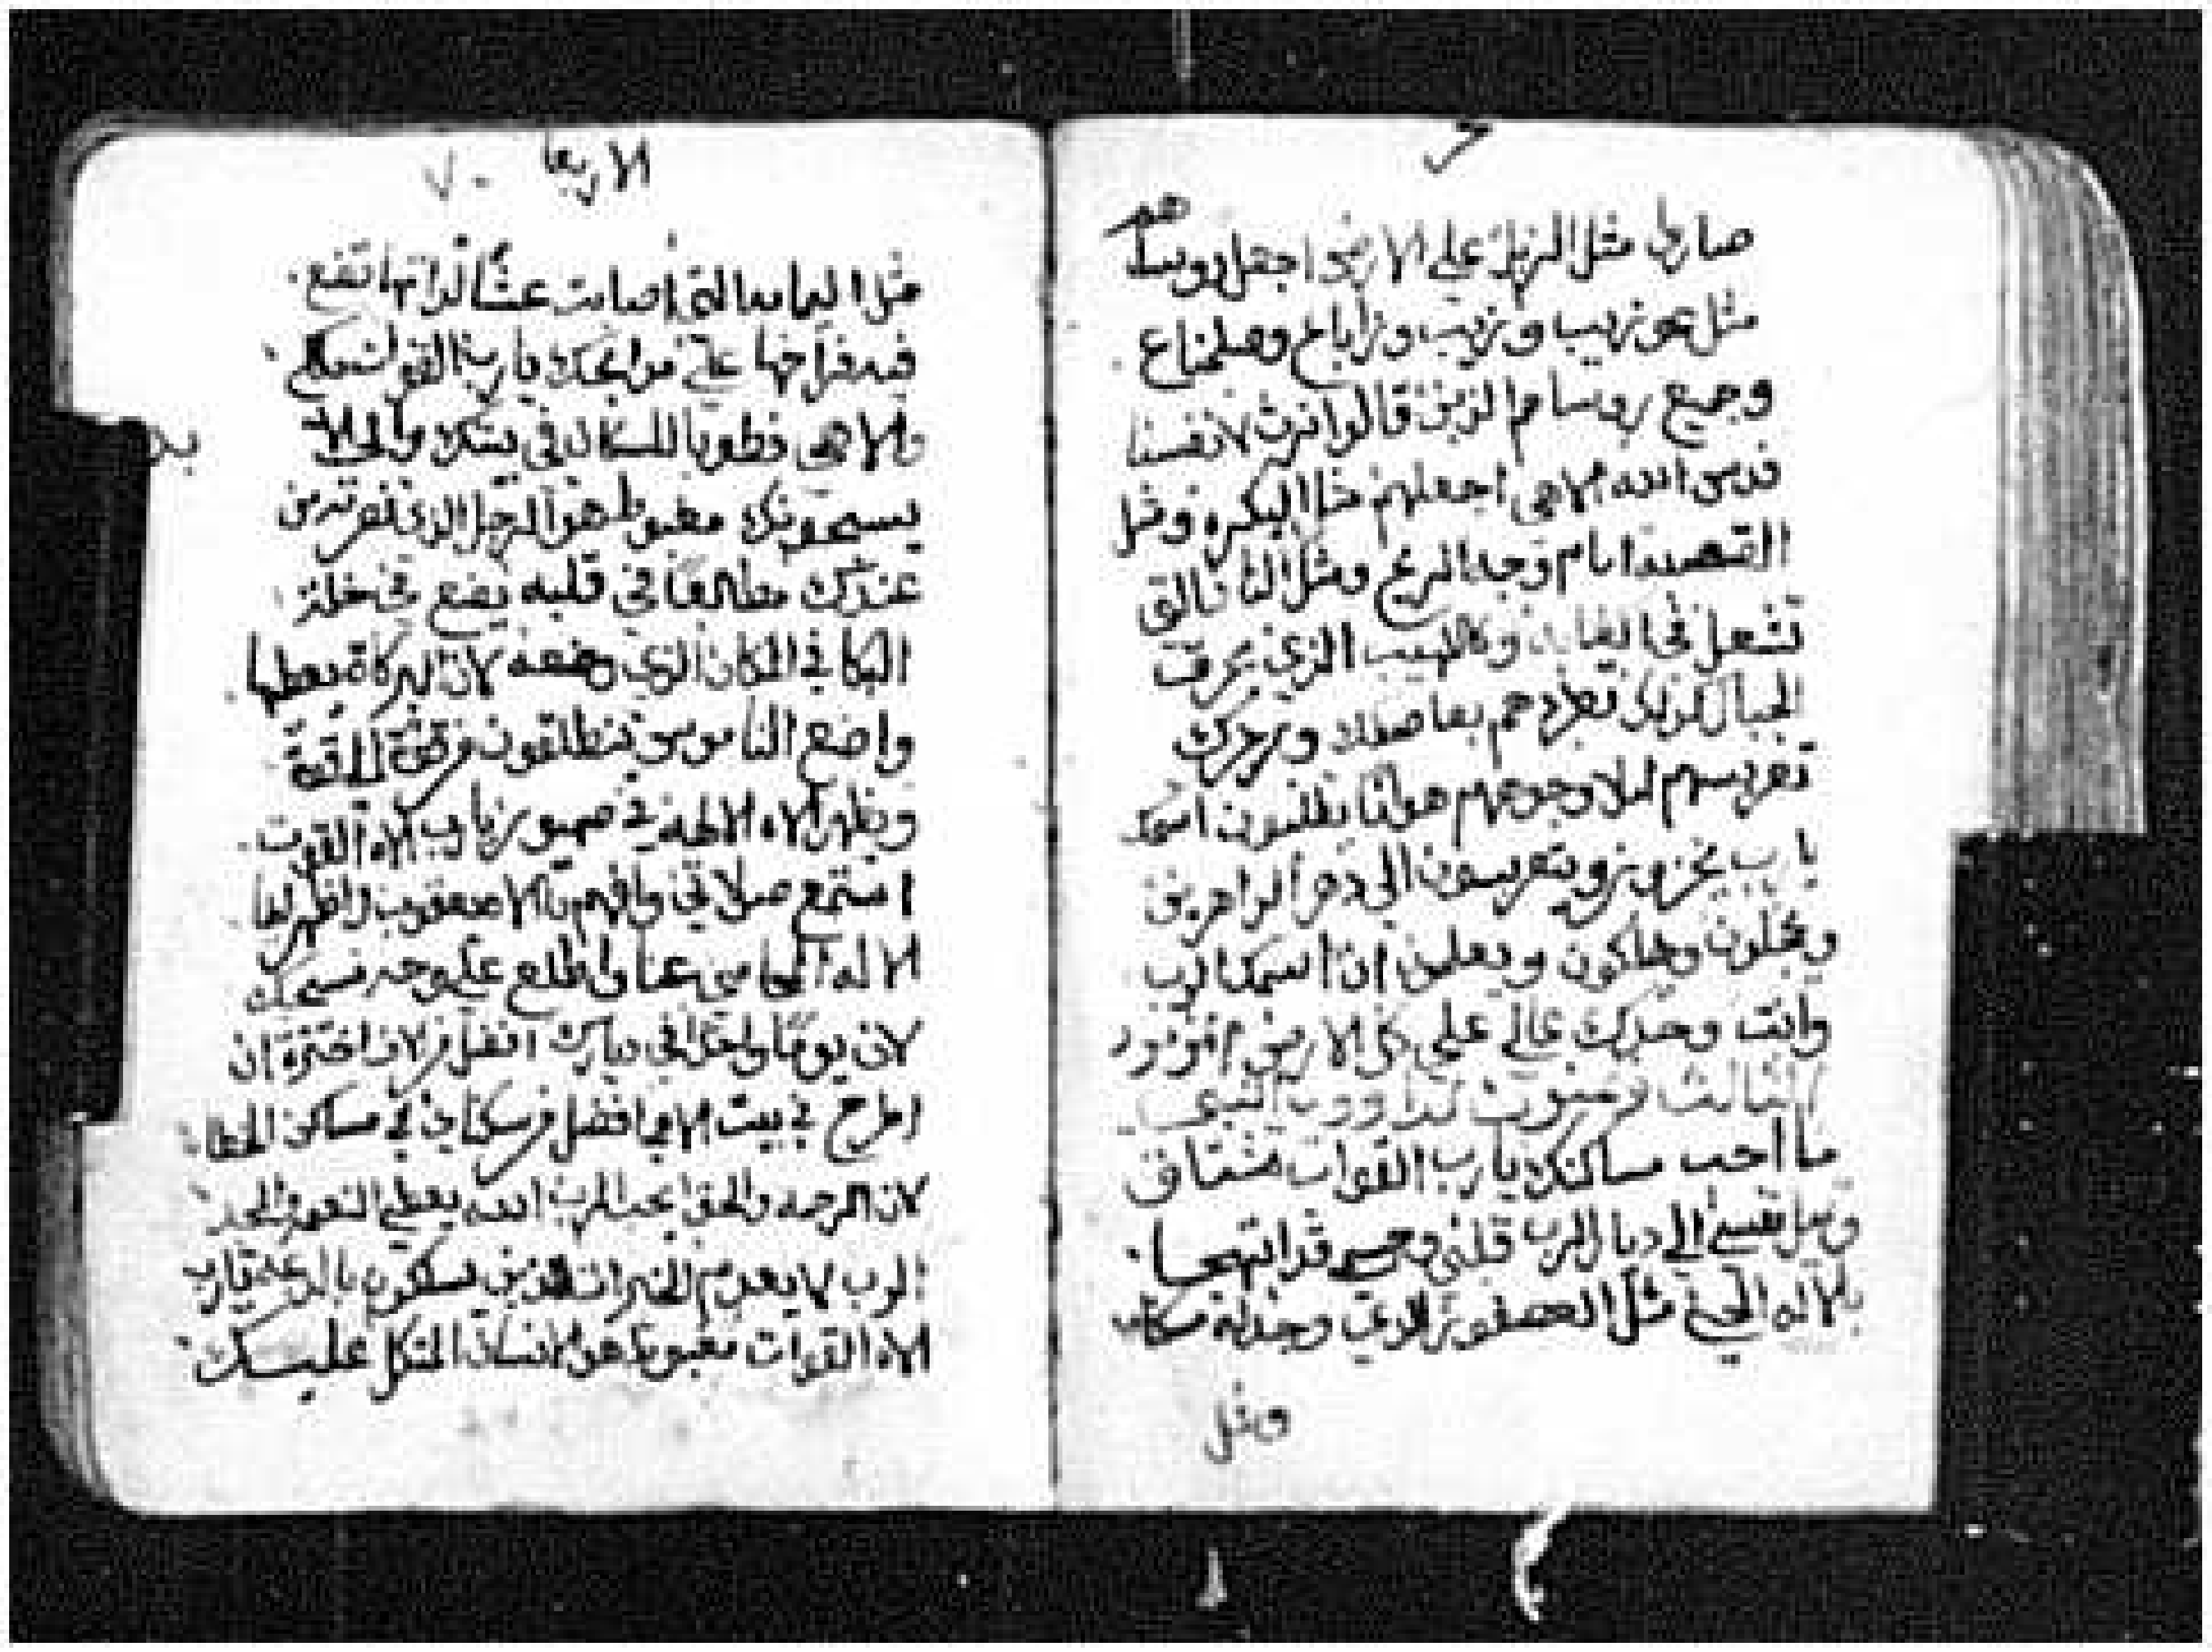 صاروا مثل الزبل علي الارض اجعل روساهم
مثل عوزيب وزيب وزاباح وصلمناع
وجميع روساهم الذين قالوا نرث لانفسنا
قدس الله الاهي اجعلهم مثل البكره ومثل
القصبه امام وجه الريح ومثل النار التي
تشعل في الغاب وكاللهيب الذي يحرق
الجبال كذلك تطردهم بعاصفك وبرجزك
تعربسهم املا وجوههم هوانا يطلبون اسمك
يارب يخزون ويتعربسون الي دهر الداهرين
ويخجلون ويهلكون ويعلمون ان اسمك الرب
وانت وحدك عالي علي كل الارض مزمور
الثالث وثمنون لداوود النبي
ما احب مساكنك يارب القوات تشتاق
وتل نفسي الي ديار الرب قلبي وجسمي قد ابتهجا
بالاله الحي مثل العصفور الذي وجد له مسكنا
ومثل
الاربعا ٧٠
مثل اليمامه التي اصابت عشا لذاتها تضع
فيه فراخها علي مذابحك يارب القوات ملكي
والاهي فطوبا للسكان في بيتك والي الابد
يسبحونك مغبوط هو الرجل الذي نصرته من
عندك مطالعا في قلبه يضع في محلة
البكا في المكان الذي وضعه لان البركاة يعطيها
واضع الناموس ينطلقون من قوة الي قوة
ويظهر الاه الالهه في صهيون يارب الاه القوات
استمع صلاتي وافهم يا الاه يعقوب واظهر لنا
الاله المحامي عنا واطلع علي وجه مسيحك
لان يوما واحدا في ديارك افضل من الاف اخترة ان
اطرح في بيت الاهي افضل من سكناي في مساكن الخطاه
لان الرحمه والحق يحب الرب الله يعطي النعمه والمجد
الرب لا يعدم الخيرات للذين يسلكون بالدعه يارب
الاه القوات مغبوط هو الانسان المتكل عليك